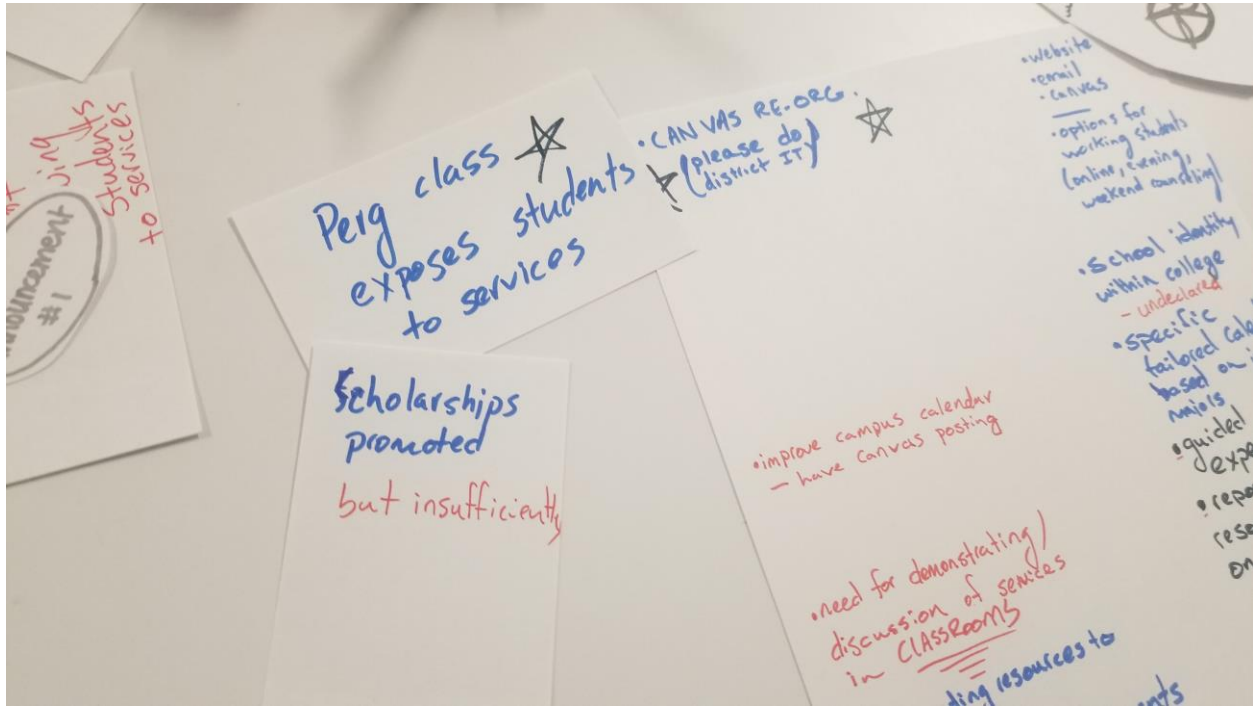 jing
Students
to services
#1
Perg class
exposes students
to services
Scholarships
promoted
but insufficiently
• CANVAS RE-ORG.
(please do
district IT)
• website
• email
• canvas
• options for
working students
(online, evening,
weekend counseling)
• school identity
within college
- undeclared
• specific
tailored
based on
majors
• guided
• improve campus calendar
- have canvas posting
• need for demonstrating/
discussion of services
in CLASSROOMS
ding resources to